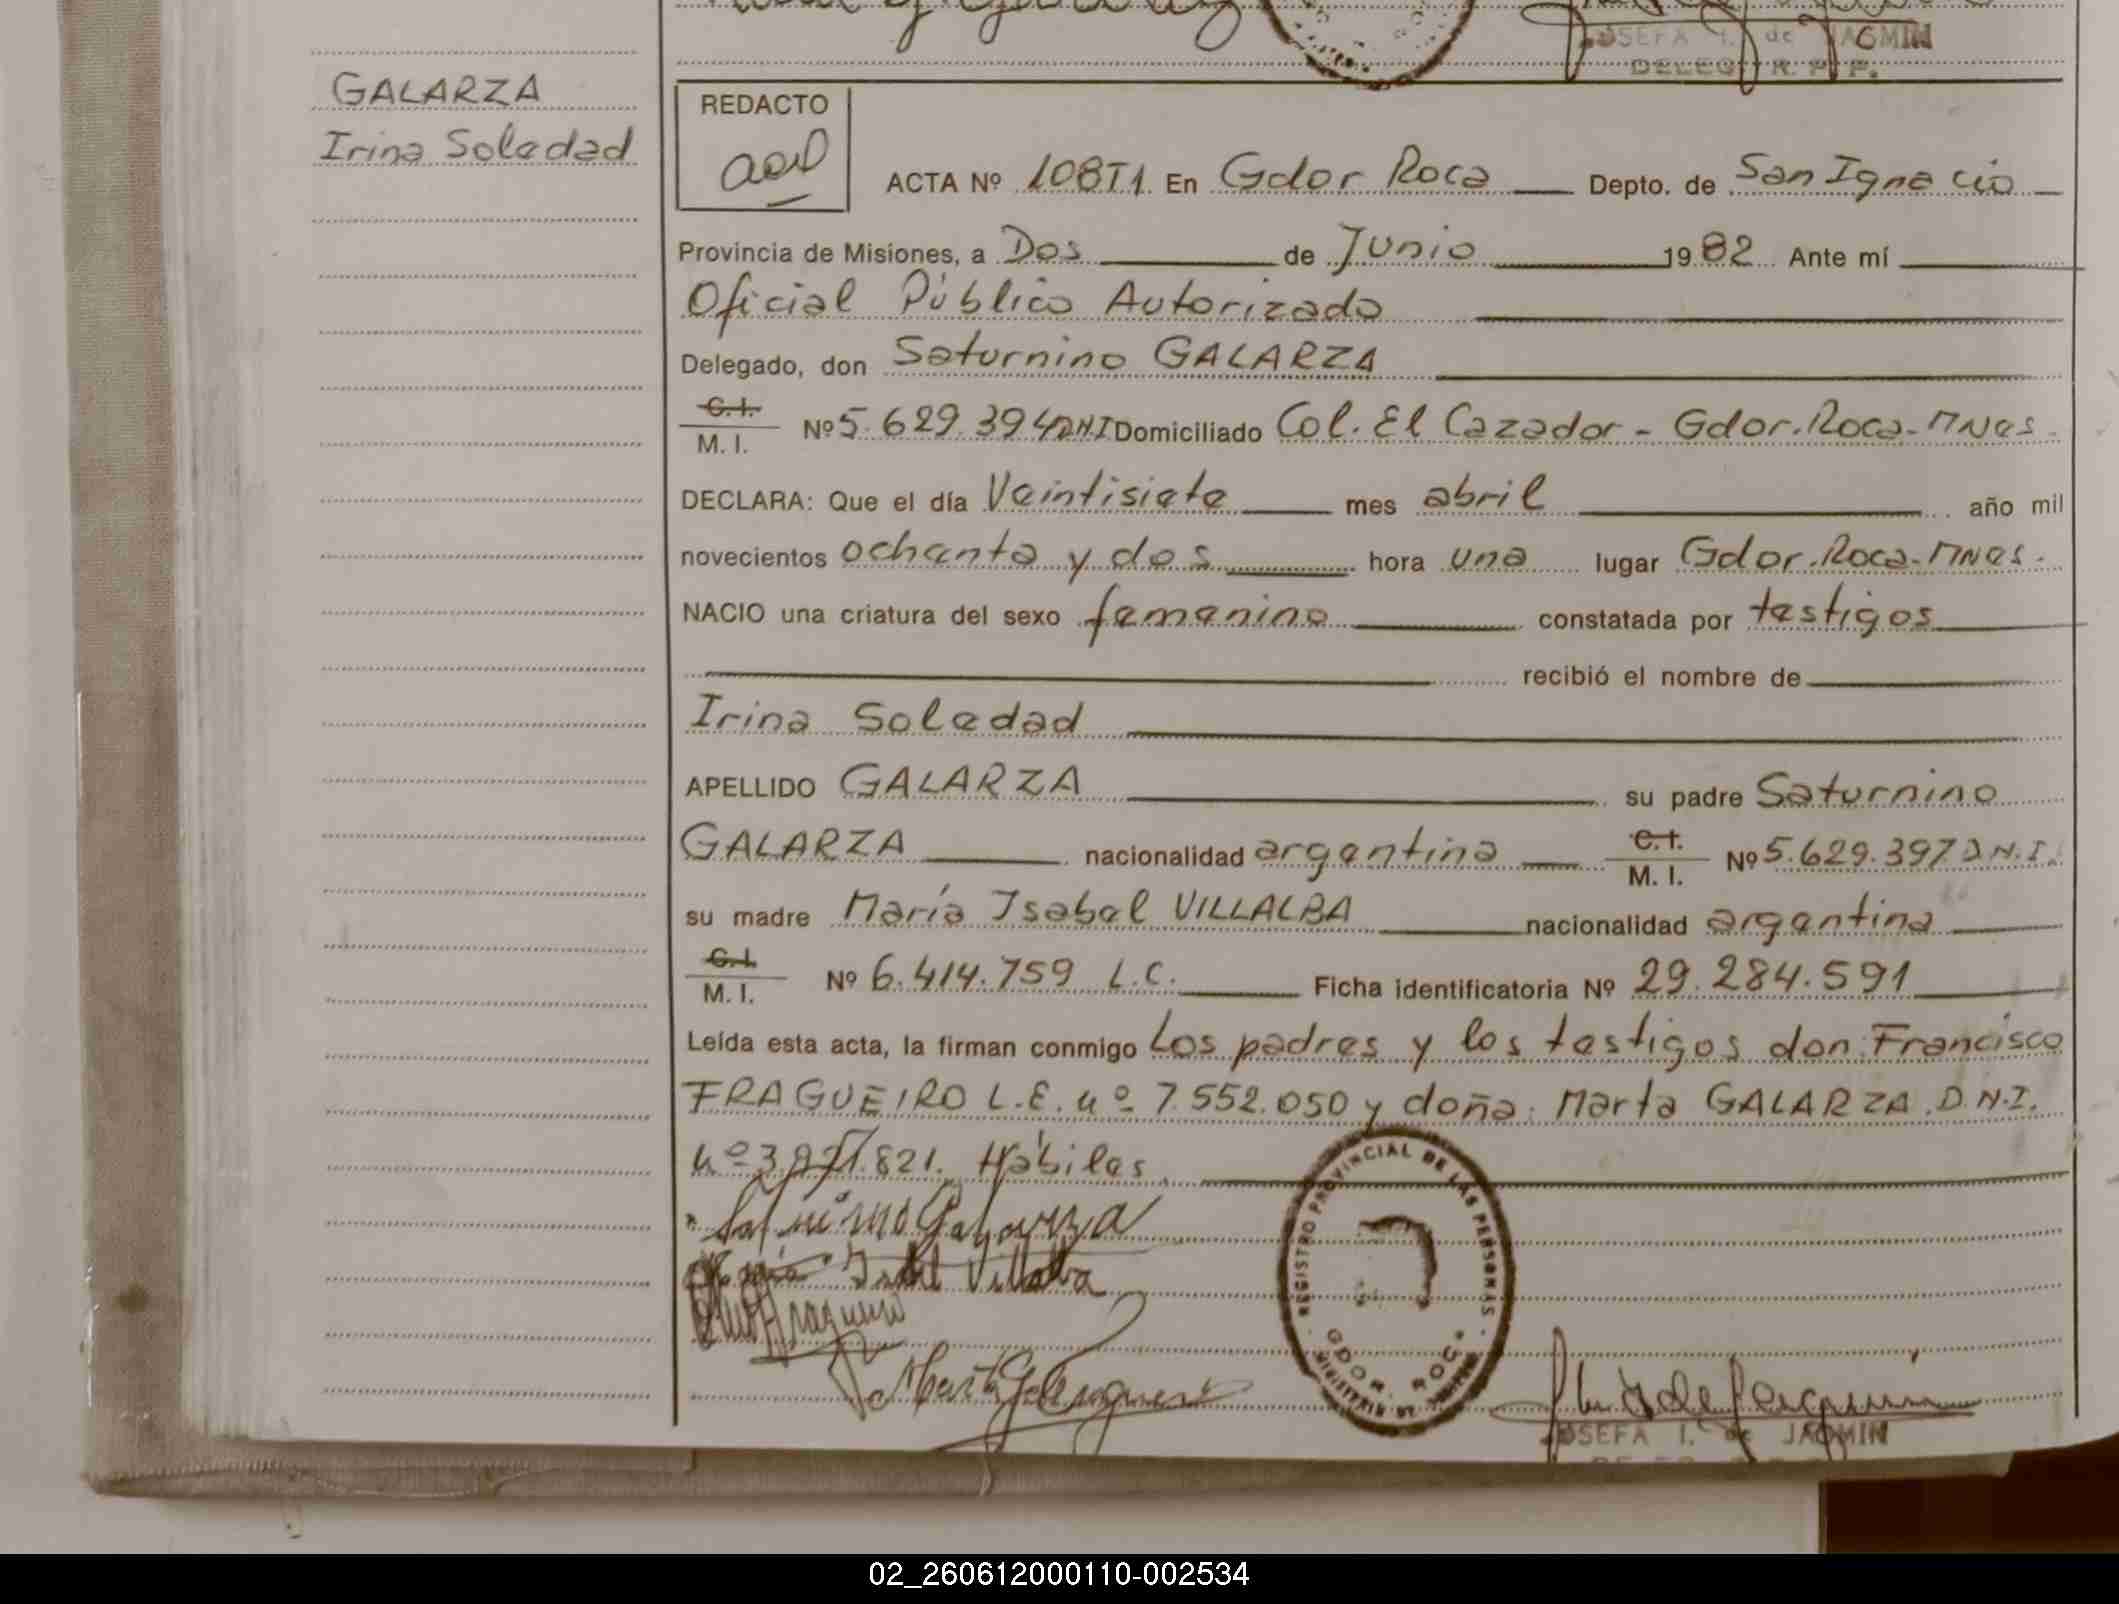 JOSEFA I. de JACMIN
DELEG. R. P. P.
GALARZA
Irina Soledad
REDACTO
ACTA Nº 108T1 En Gdor Roca Depto. de San Ignacio
Provincia de Misiones, a Dos de Junio 1982 Ante mí
Oficial Público Autorizado
Delegado, don Saturnino GALARZA
C.I.
M. I. Nº 5.629.394 DNI Domiciliado Col. El Cazador - Gdor. Roca - MNes.
DECLARA: Que el día Veintisiete mes abril año mil
novecientos ochenta y dos hora una lugar Gdor. Roca - MNes.
NACIO una criatura del sexo femenino constatada por testigos
recibió el nombre de
Irina Soledad
APELLIDO GALARZA su padre Saturnino
GALARZA nacionalidad argentina C.I. M. I. Nº 5.629.397 D.N.I.
su madre María Isabel VILLALBA nacionalidad argentina
C.I.
M. I. Nº 6.414.759 L.C. Ficha identificatoria Nº 29.284.591
Leída esta acta, la firman conmigo Los padres y los testigos don: Francisco
FRAGUEIRO L.E. nº 7.552.050 y doña: Marta GALARZA D.N.I.
821. Hábiles
Saturnino Galarza
María Isabel Villalba
REGISTRO PROVINCIAL DE LAS PERSONAS
GDOR. ROCA
JOSEFA I. de JACMIN
02_260612000110-002534